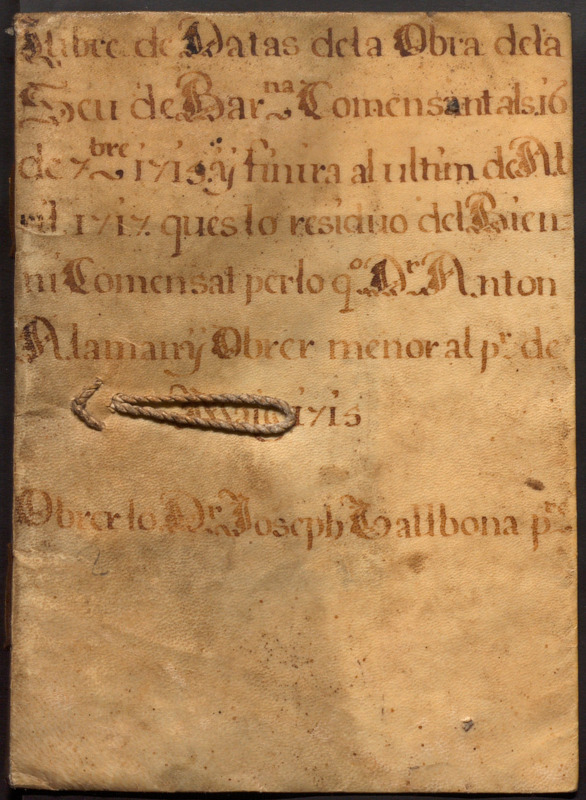 Llibre de Datas dela Obra dela
Seu de Bar.na Comensant als 16
de 7bre 1715 y finira al ultim de Ab
ril 1717 ques lo residuo del Bien
ni Comensat per lo qo. Dr. Anton
Alamany Obrer menor al pr. de
Maig 1715
Obrer lo Dr. Joseph Vallbona pre
2